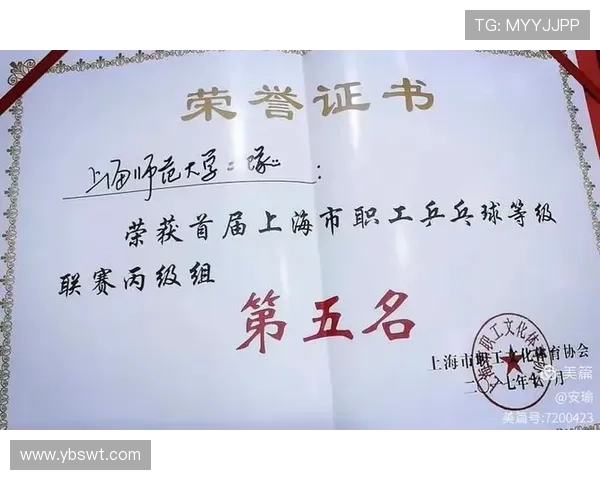 TG: MYYJJPP
荣誉证书
上海师范大学二队:
荣获首届上海市职工乒乓球等级
联赛丙级组
第五名
上海市职工文化体育协会
二〇一七年十月
美篇
@安瑜
美篇号:7200423
www.ybswt.com